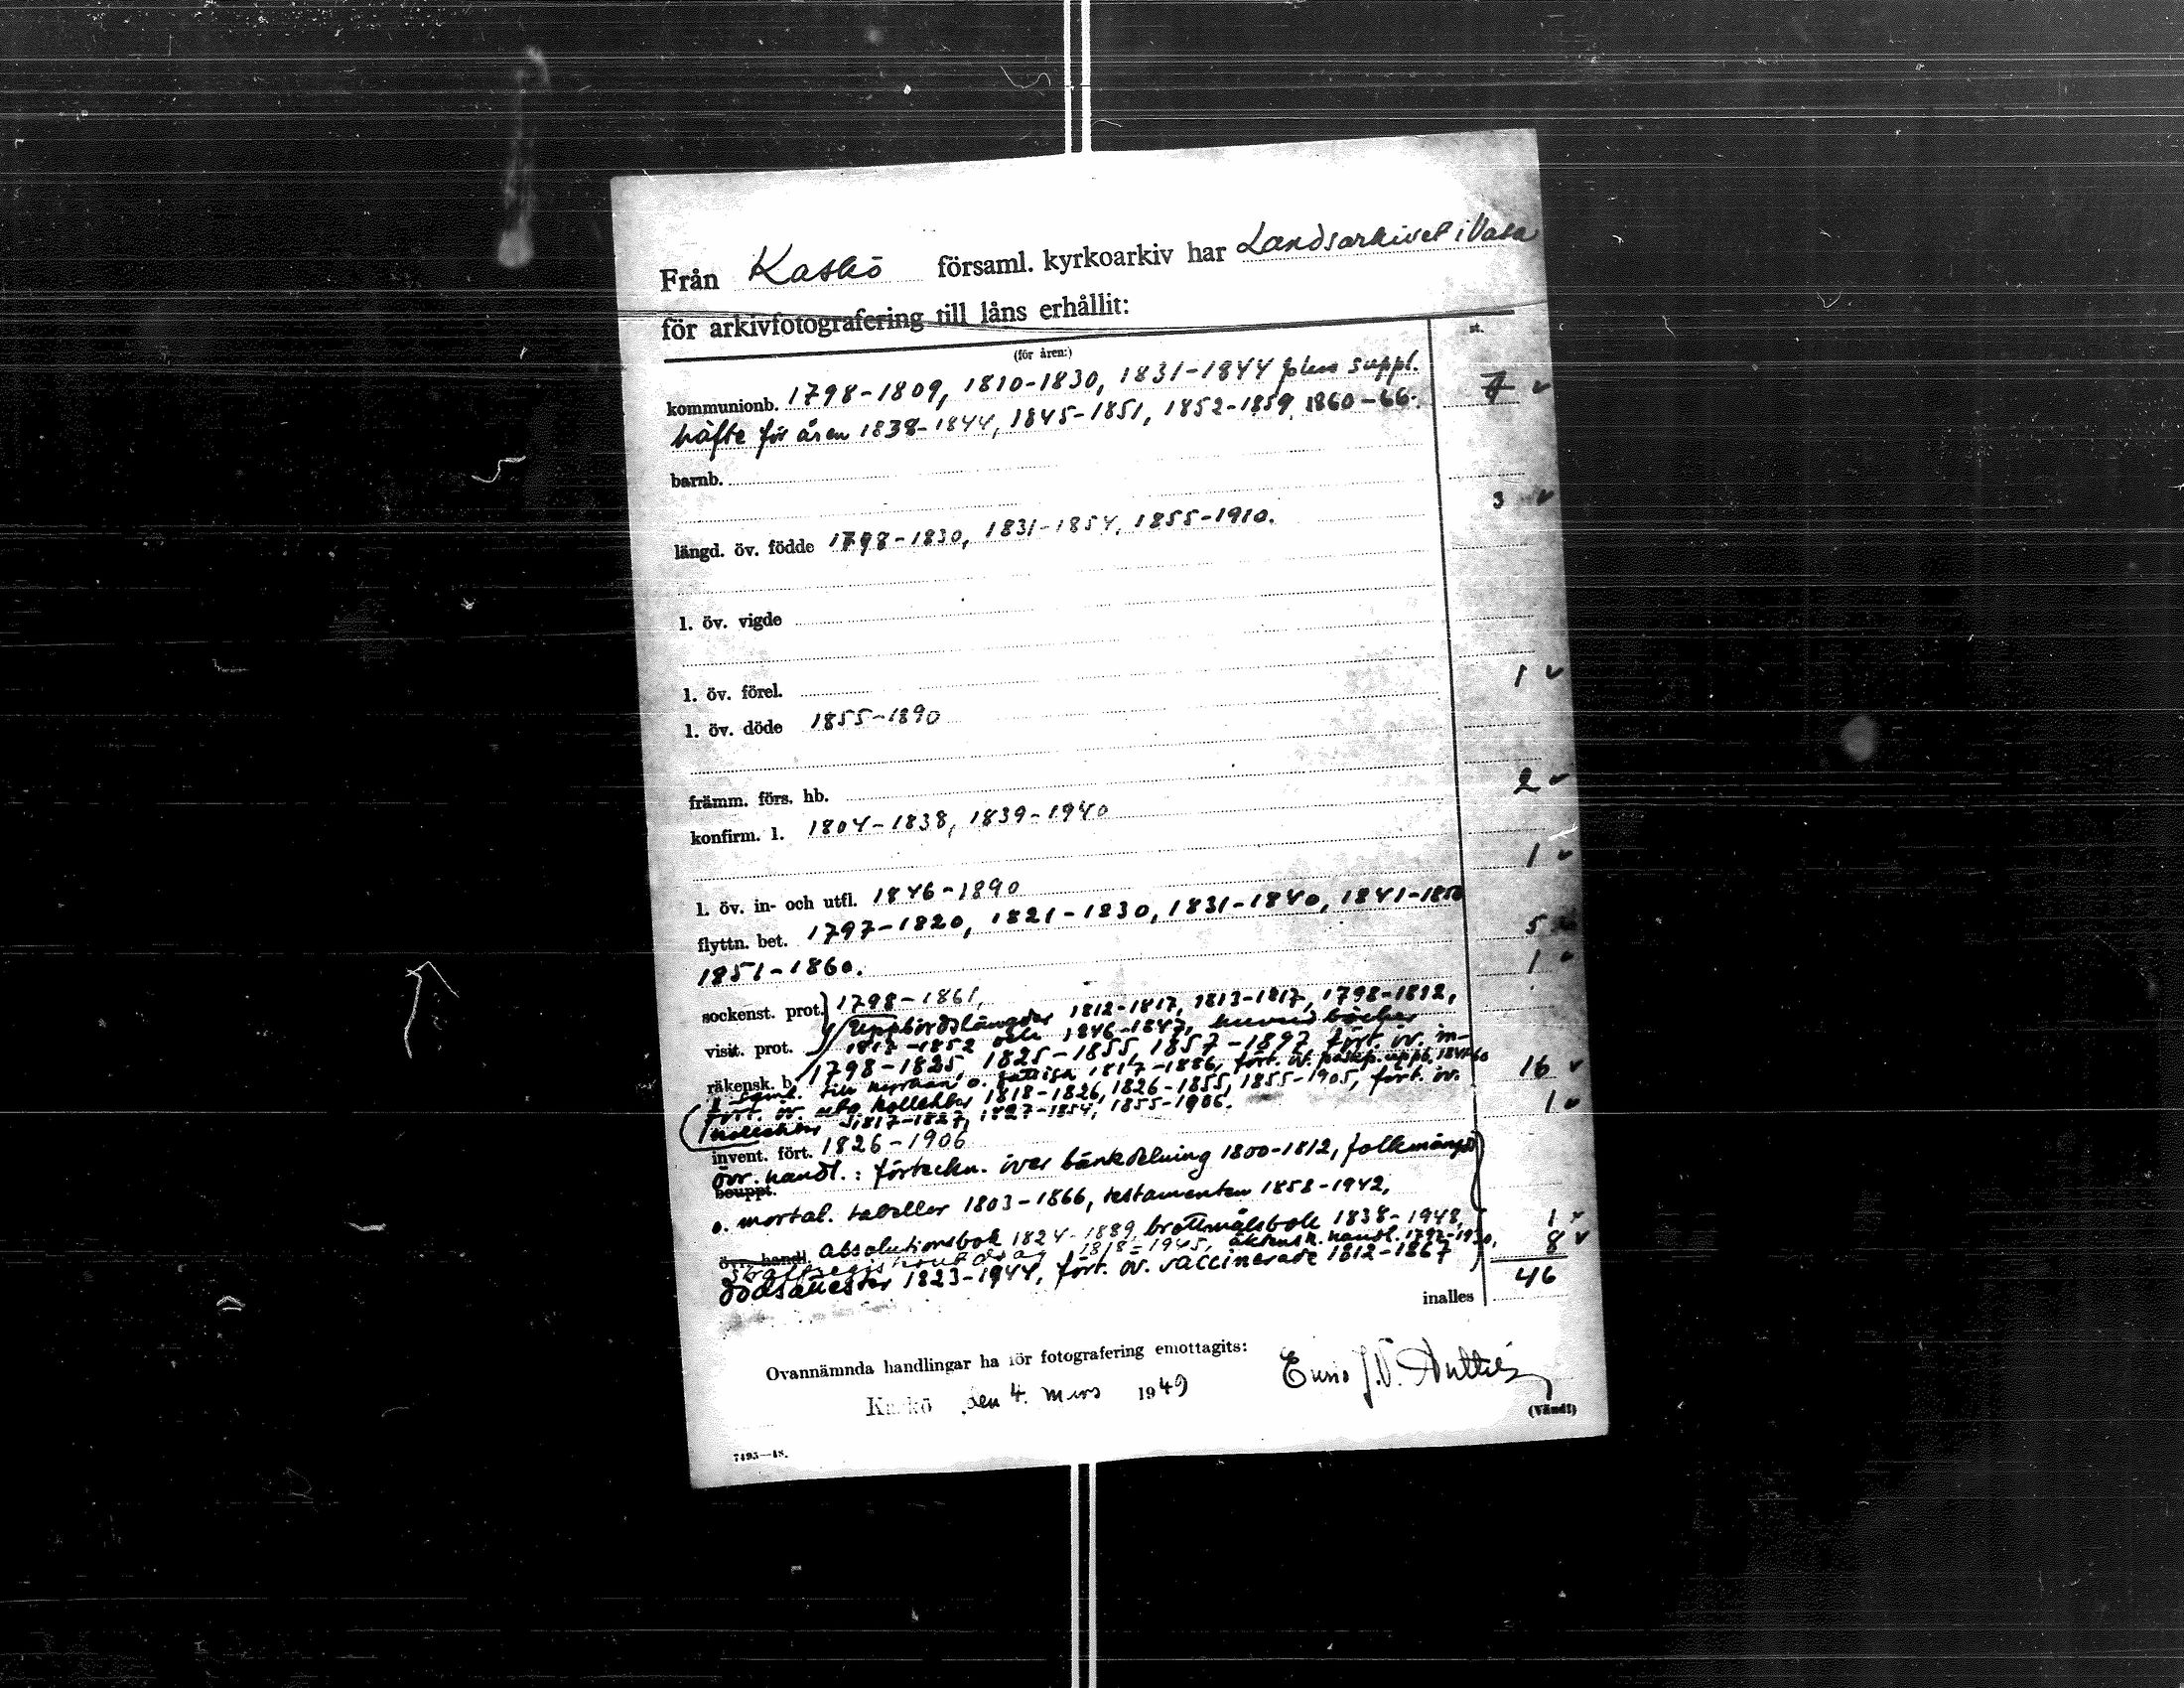 Från Kaskö församl. kyrkoarkiv har Landsarkivet i Vasa
för arkivfotografering till låns erhållit:
(för åren:) st.
kommunionb. 1798-1809, 1810-1830, 1831-1844 plus suppl. 7 v
häfte för åren 1838-1844, 1845-1851, 1852-1859, 1860-66.
barnb.
längd. öv. födde 1798-1830, 1831-1854, 1855-1910. 3 v
l. öv. vigde
l. öv. förel.
l. öv. döde 1855-1890 1 v
främm. förs. hb.
konfirm. l. 1804-1838, 1839-1940 2 v
l. öv. in- och utfl. 1846-1890 1 v
flyttn. bet. 1797-1820, 1821-1830, 1831-1840, 1841-1850
1851-1860. 5 v
sockenst. prot. 1798-1861, 1 v
visit. prot. Uppbördslängder 1812-1817, 1813-1817, 1798-1812,
1813-1852 och 1846-1847, huvudböcker
räkensk. b. 1798-1825, 1825-1855, 1857-1897, fört. öv. in-
saml. till kyrkan o. fattiga 1817-1886, fört. öv. 16 v
fört. öv. utg. kollekter 1818-1826, 1826-1855, 1855-1905, fört. öv.
kollekter 1817-1827, 1827-1854, 1855-1906.
invent. fört. 1826-1906 1 v
övr. handl.: förteckn. över bänkdelning 1800-1812, folkmängd
bouppt.
o. mortal. tabeller 1803-1866, testamenten 1858-1942,
övr. handl. absolutionsbok 1824-1889, brottmålsbok 1838-1948, 1 v
straffregisterutdrag 1818-1945, äktensk. handl. 1792-1930, 8 v
dödsattester 1823-1944, fört. öv. vaccinerade 1812-1867
inalles 46
Ovannämnda handlingar ha för fotografering emottagits:
Kaskö den 4. mars 1949
(Vänd!)
7495—48.